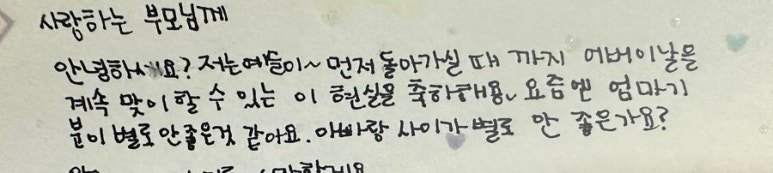 사랑하는 부모님께
안녕하세요? 저는예슬이~ 먼저 돌아가실 때 까지 어버이날을
계속 맞이할 수 있는 이 현실을 축하해용~ 요즘엔 엄마기
분이 별로안좋은것 같아요. 아빠랑 사이가 별로 안 좋은가요?